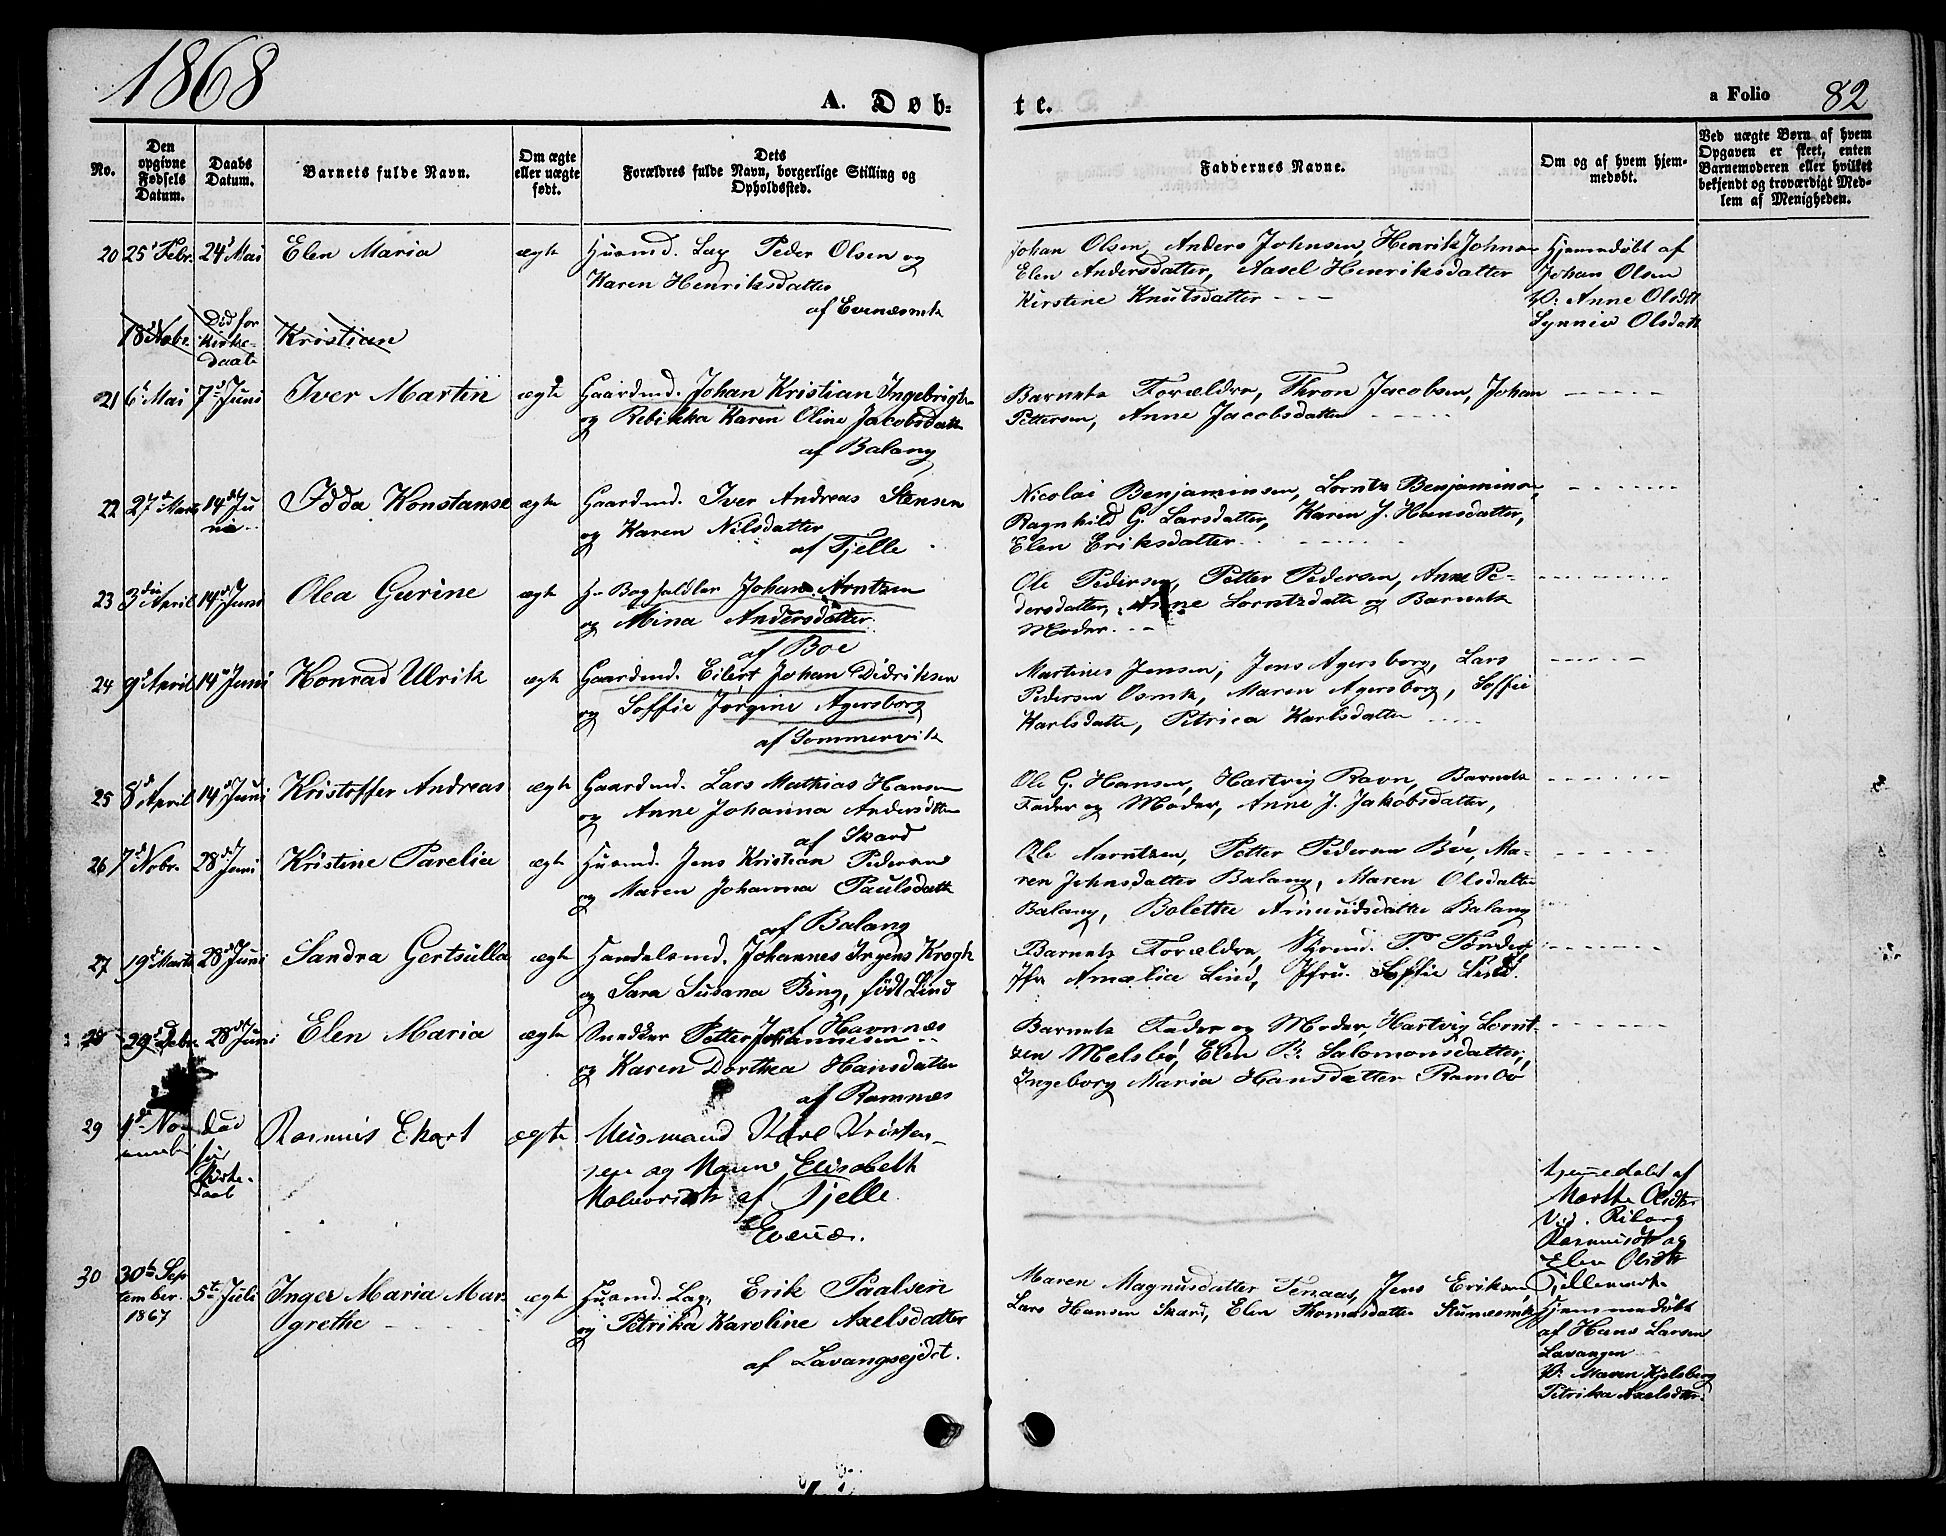 1868
A. Døb-
te.
a Folio 82
No.
Den opgivne Fødsels Datum.
Daabs Datum.
Barnets fulde Navn.
Om ægte eller uægte født.
Dets Forældres fulde Navn, borgerlige Stilling og Opholdssted.
Faddernes Navne.
Om og af hvem hjemmedøbt.
Ved uægte Børn af hvem Opgaven er skeet, enten Barnemoderen eller hvilket bekjendt og troværdigt Medlem af Menigheden.
20 25 Febr. 24 Mai Elen Maria ægte Husmd. Lap Peder Olsen og
Karen Henriksdatter
af Evenæsmk
Johan Olsen, Anders Johnsen, Henrik Johns
Elen Andersdatter, Aasel Henriksdatter
Kirstine Knutsdatter
Hjemmedøbt af
Johan Olsen
V. Anne Olsdtt
Synnie Olsdatt
18 Nobr. Død før Kirke-daab Kristian
21 6 Mai 7 Juni Iver Martin ægte Gaardmd. Johan Kristian Ingebrigts
og Rebikka Karen Oline Jacobsdatt
af Balang
Barnets Forældre, Thron Jacobsen, Johan
Pettersen, Anne Jacobsdatter
22 27 Marts 14 Ju-
ni Idda Konstanse ægte Gaardmd. Iver Andreas Stensen
og Karen Nilsdatter
af Tjelle
Nicolai Benjaminsen, Lorntz Benjaminsen,
Ragnhild G. Larsdatter, Karen J. Hansdatter,
Elen Eriksdatter
23 3die April 14 Juni Olea Gurine ægte Johan Arntzen
og Mina Andersdatter
af Boe
Ole Pedersen, Petter Pedersen, Anne Pe-
dersdatter, Anne Lorntzdatter og Barnets
Moder
24 9 April 14 Juni Konrad Ulrik ægte Gaardmd. Eilert Johan Didriksen
og Soffie Jørgine Agersborg
af Sommervik
Martines Jensen, Jens Agersborg, Lars
Pedersen Osmk, Maren Agersborg, Soffie
Karlsdatter, Petrica Karlsdatter
25 8 April 14 Juni Kristoffer Andreas ægte Gaardmd. Lars Mathias Hansen
og Anne Johanna Andersdtter
af Skard
Ole G. Hansen, Hartvig Ravn, Barnets
Fader og Moder, Anne J. Jakobsdatter,
26 7 Nobr. 28 Juni Kristine Parelia ægte Husmd. Jens Kristian Pedersen
og Maren Johanna Paulsdatt
af Balang
Ole Aarntzen, Petter Pedersen Bøe, Ma-
ren Johnsdatter Balang, Maren Olsdatter
Balang, Bolethe Amundsdatter Balang
27 19 Marts 28 Juni Sandra Gertsulla ægte Handelsmd. Johannes Irgens Krogh
og Sara Susana Bing, født Lind
af Havnnæs
Barnets Forældre, T. Tønder
Jfr Amalia Lind, Jfru. Soffie Lind.
28 29 Febr. 28 Juni Elen Maria ægte Snedker Petter Johannesen
og Karen Dorthea Hansdatter
af Ramnæs
Barnets Fader og Moder, Hartvig Lornt-
zen Melsbø, Elen B. Salomonsdatter,
Ingeborg Maria Hansdatter Rambø
29 1 No-
vember Død
før
Kirke-
daab Rasmus Ekart ægte Husmand Karl Kristen-
sen og Maren Elisabeth
af Tjelle
Evenæs.
Hjemmedøbt af
Marthe Olsdtr
Vid. Riborg
Rasmusdt og
Elen Olsdtr
Tjellemark
30 30te Sep
tember
1867 5te Juli Inger Maria Mar-
grethe ægte Husmd. Lap, Erik Paalsen
og Petrika Karoline Axelsdatter
af Lavangsejdet.
Maren Magnusdatter Tenaas, Jens Eriksen,
Lars Hansen Skard, Elen Thomasdatter
Hjemmedøbt
af Hans Larsen
Lavangen
V. Maren Kjelsberg
Petrikka Axelsdtr.